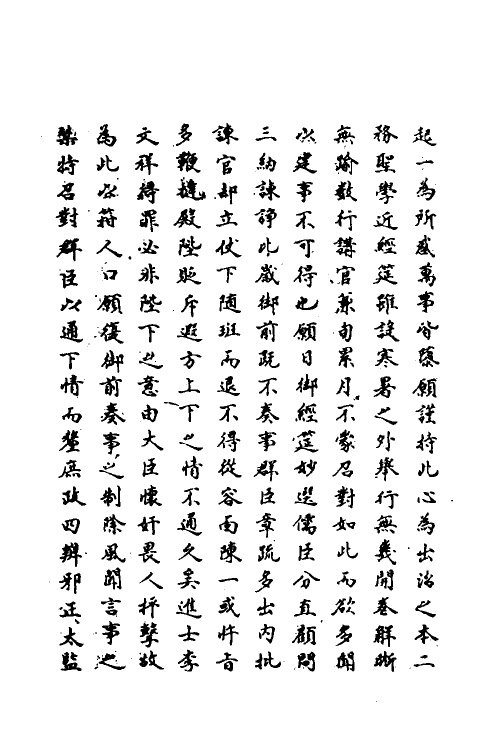 起一為所惑萬事皆隳願謹持此心為出治之本二
務聖學近經筵雖設寒暑之外舉行無幾開卷解晰
無踰數行講官兼旬累月不蒙召對如此而欲多聞
以建事不可得也願日御經筵妙選儒臣分直顧問
三納諫諍此歲御前既不奏事群臣章疏多出内批
諫官却立仗下隨班而退不得從容面陳一或忤旨
多鞭撻殿陛貶斥遐方上下之情不通久矣進士李
文祥得罪必非陛下之意由大臣懷奸畏人抨擊故
為此以箝人口願復御前奏事之制除風聞言事之
禁特召對群臣以通下情而釐庶政四辨邪正太監